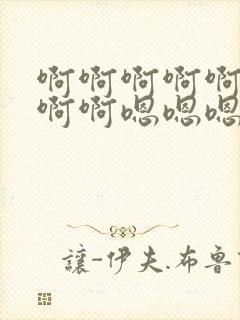 啊啊啊啊啊
啊啊嗯嗯嗯
讓-伊夫.布魯